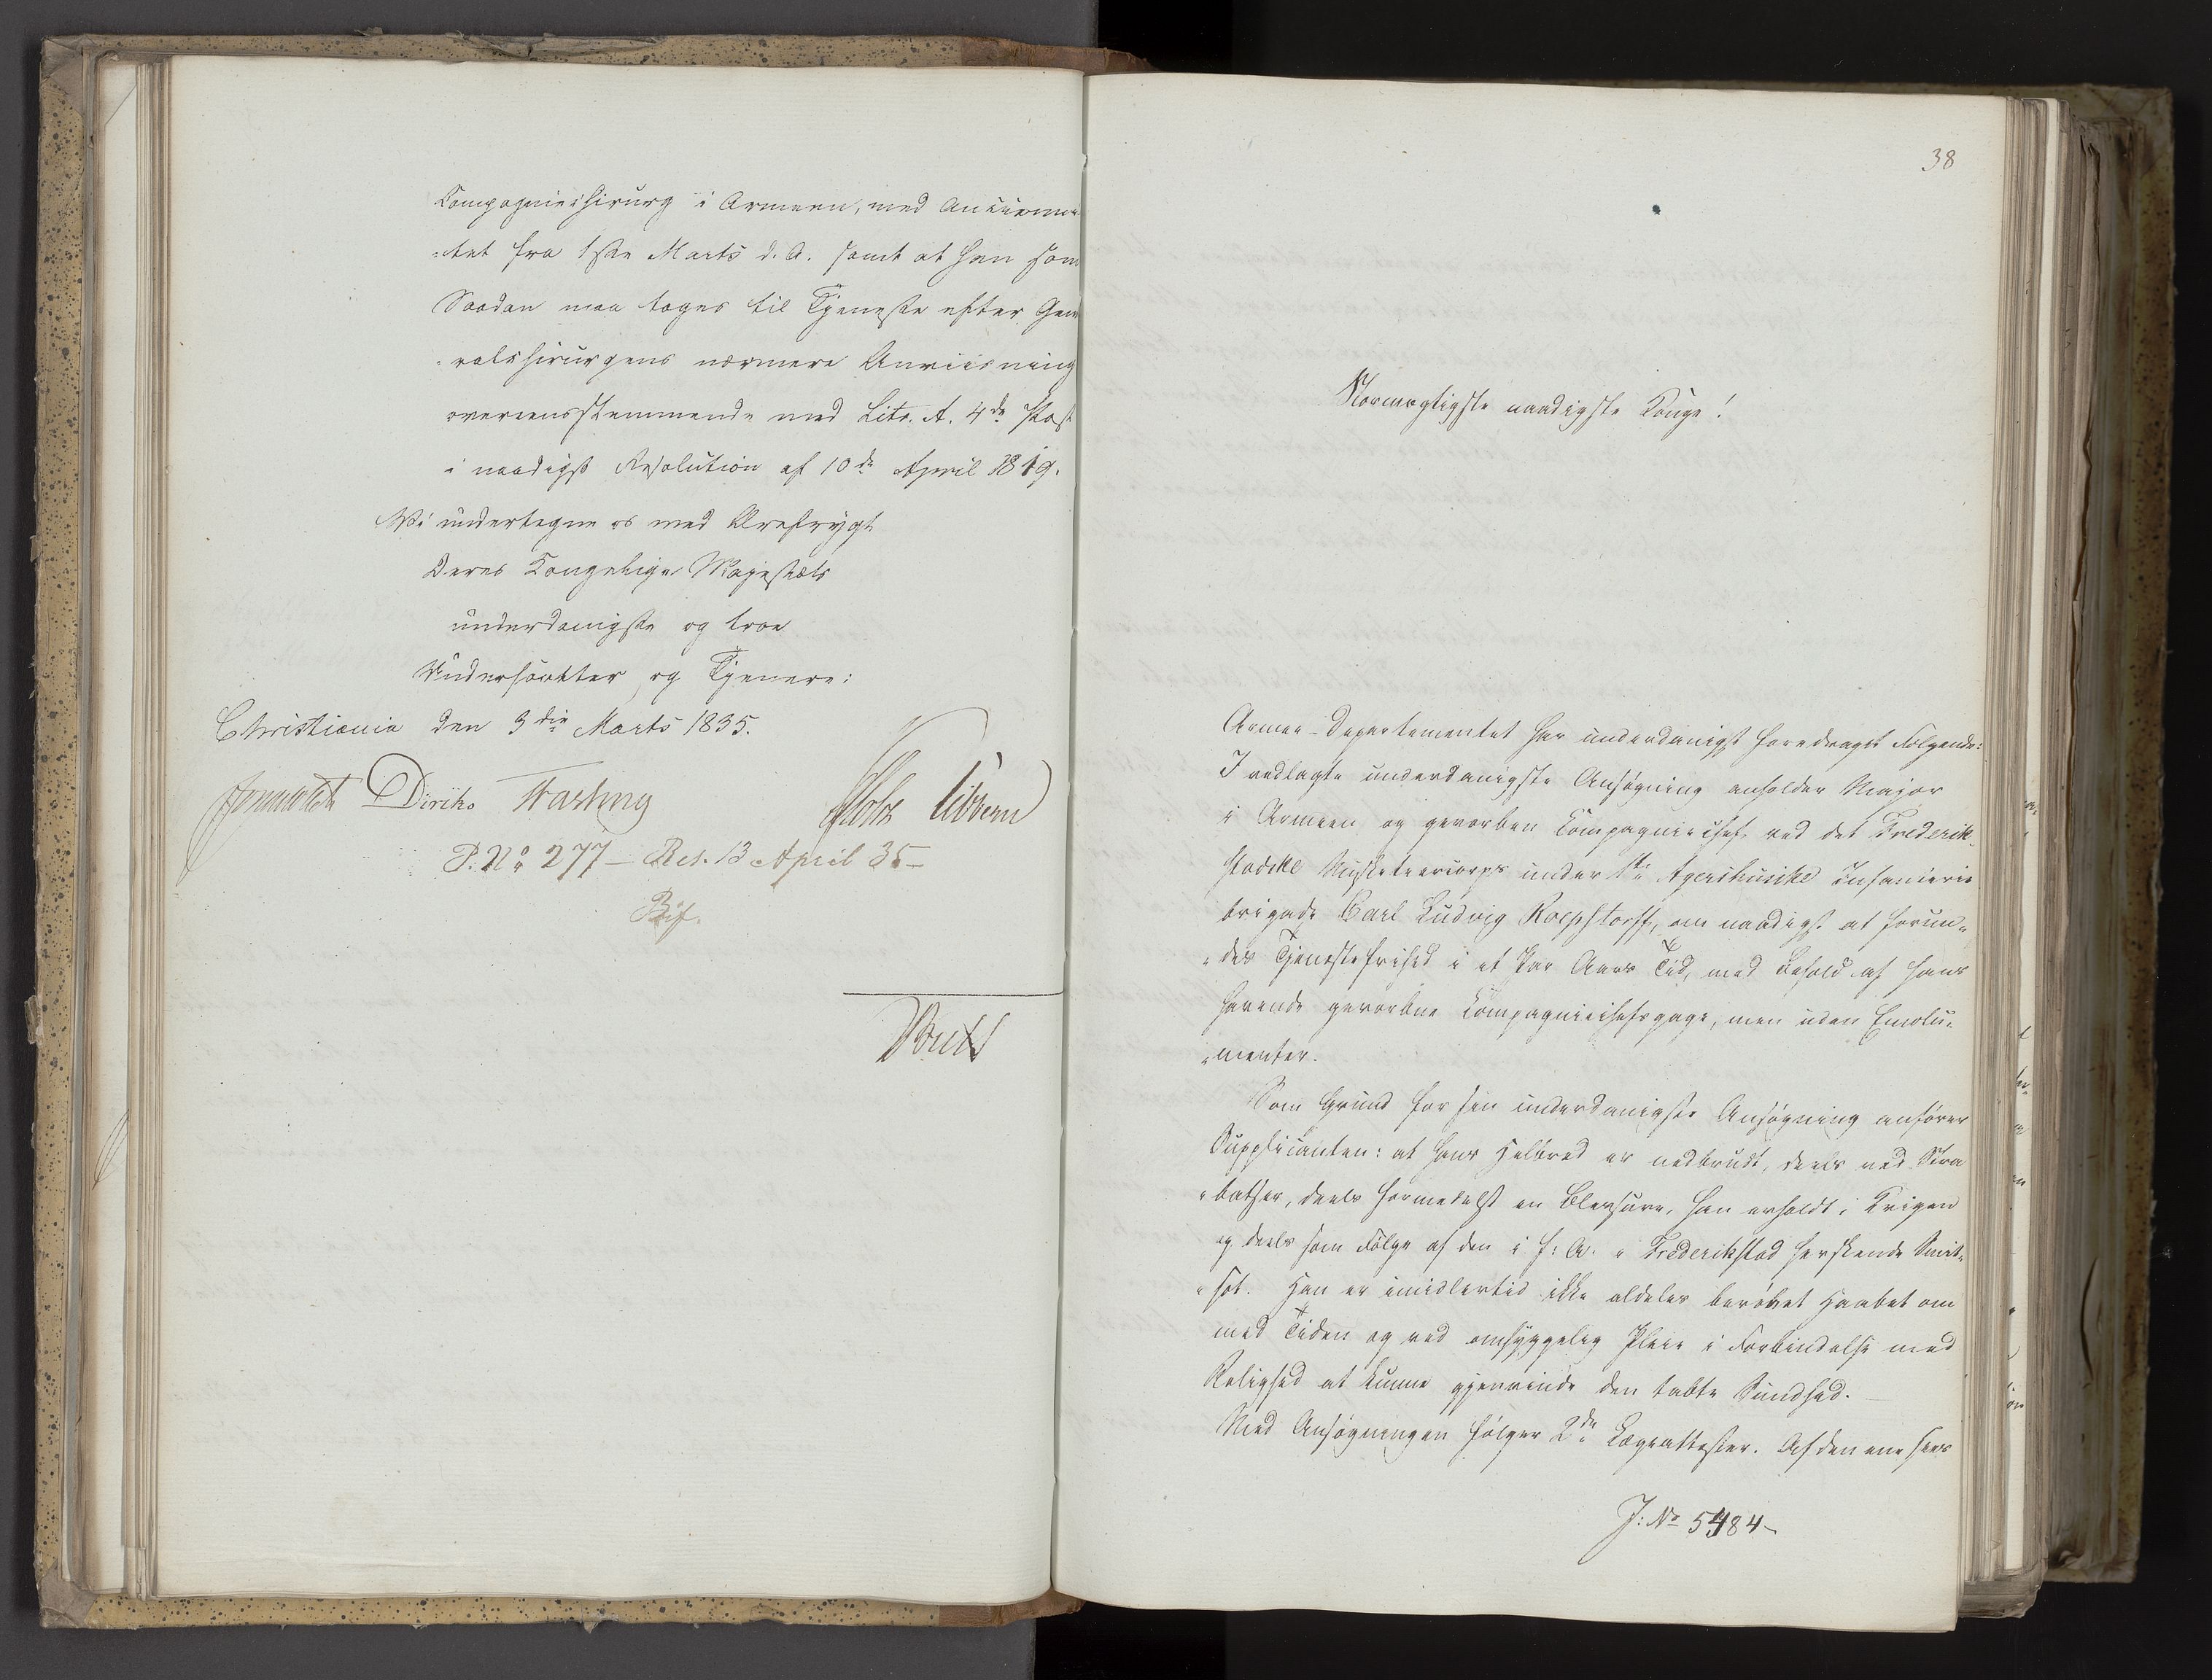 Compagniechirurg i Armeen, med Ancienni-
-tet fra 1ste Marts d. A. samt at han som
Saadan maa tages til Tjeneste efter Gene
-ralchirurgens nærmere Anviisning
overeensstemmende med Litr. A. 4de Post
i naadigst Resolution af 10de April 1819.
Vi undertegne os med Ærefrygt
Deres Kongelige Majestæts
underdanigste og troe
Undersaatter og Tjenere:
Christiania den 3die Marts 1835.
Diriks Fasting Holst Vibe
P. No 277 – Res. 13 April 35 –
Bif.
38
Stormægtigste naadigste Konge!
Armee-Departementet har underdanigst foredraget Følgende:
I vedlagte underdanigste Ansøgning anholder Major
i Armeen og gevorben Compagniechef ved det Frederik-
stadske Musketeercorps under 1ste Agershusiske Infanterie
brigade Carl Ludvig Roepstorff, om naadigst at forun-
-des Tjenestefrihed i et Par Aars Tid, med Behold af hans
havende gevorbne Compagniechefsgage, men uden Emolu-
-menter.
Som Grund for sin underdanigste Ansøgning anfører
Supplicanten: at hans Helbred er nedbrudt, deels ved Stra
-batser, deels formedelst en Blessure, han erholdt i Krigen
og deels som Følge af den i f: A. i Frederikstad herskende Smit-
-sot. Han er imidlertid ikke aldeles berøvet Haabet om
med Tiden og ved omhyggelig Pleie i Forbindelse med
Rolighed at kunne gjenvinde den tabte Sundhed. –
Med Ansøgningen følger 2de Lægeattester. Af den ene sees
J: No 5484 –